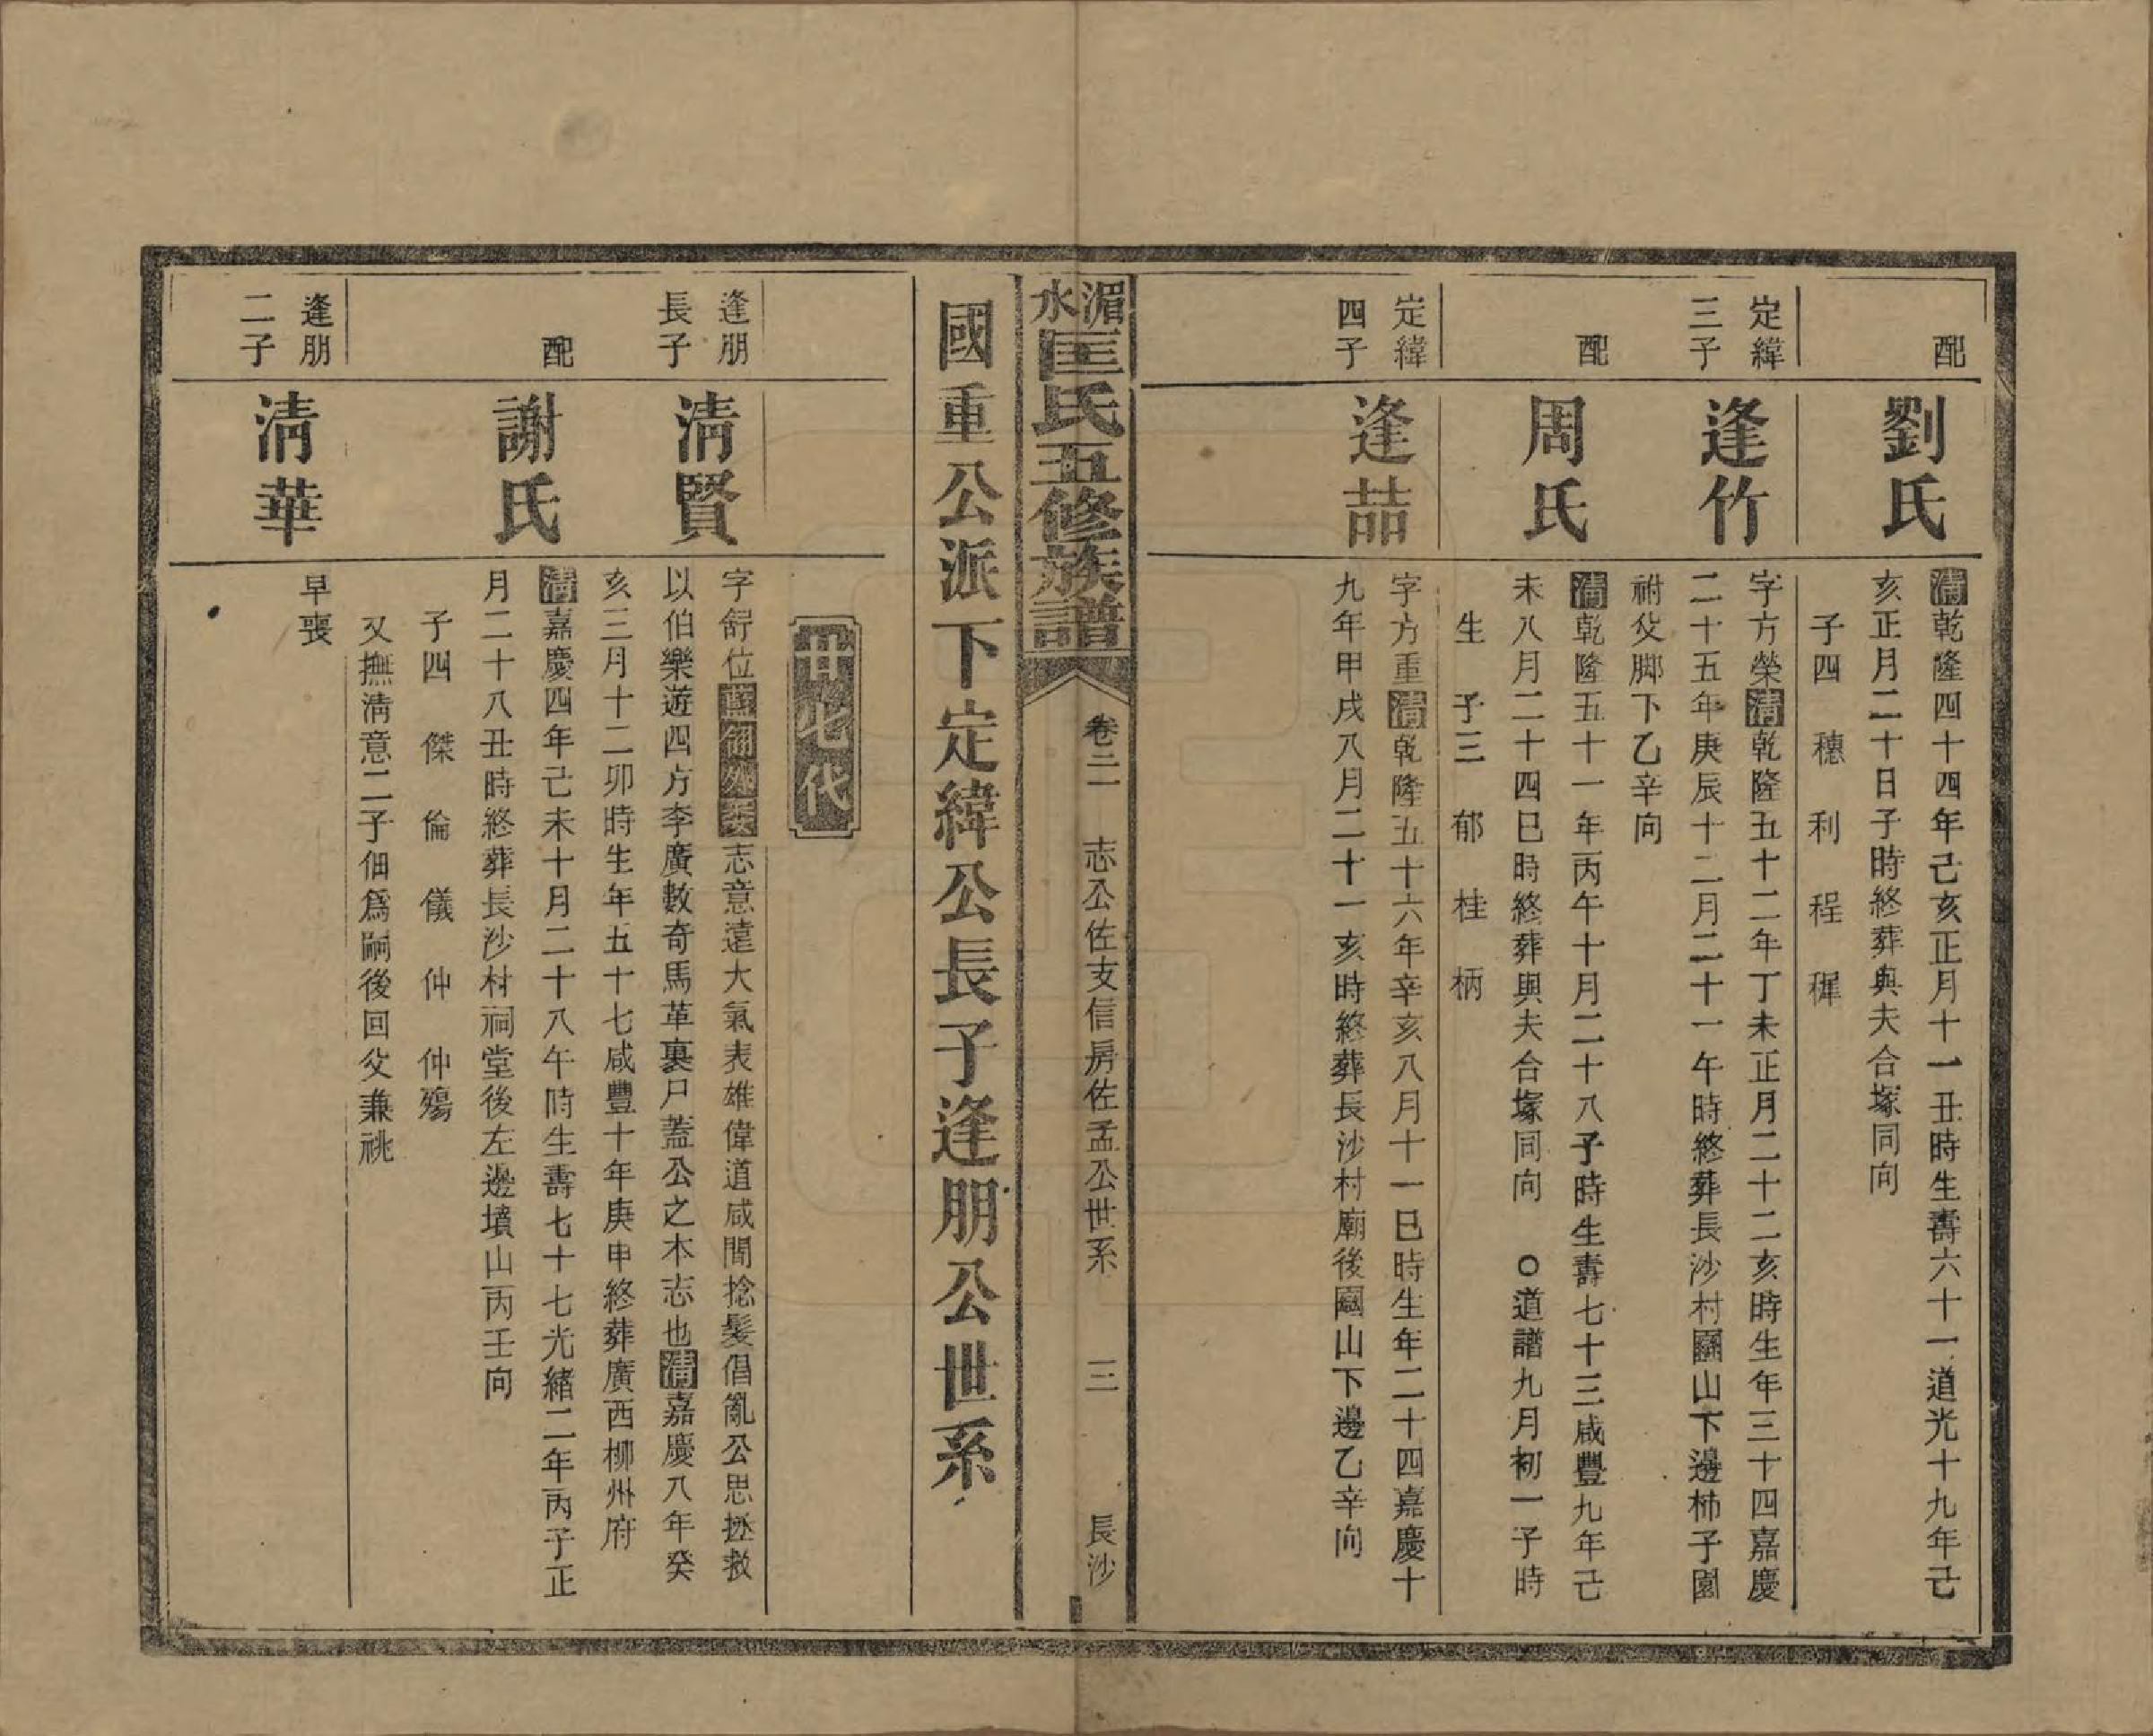 配
劉氏
清乾隆四十四年己亥正月十一丑時生壽六十一道光十九年己
亥正月二十日子時終葬與夫合塚同向
子四 穗 利 程 穉
定緯
三子
逢竹
字方榮清乾隆五十二年丁未正月二十二亥時生年三十四嘉慶
二十五年庚辰十二月二十一午時終葬長沙村關山下邊柿子園
祔父脚下乙辛向
配
周氏
清乾隆五十一年丙午十月二十八子時生壽七十三咸豐九年己
未八月二十四巳時終葬與夫合塚同向 ○道譜九月初一子時
生 子三 郁 桂 柄
定緯
四子
逢喆
字方重清乾隆五十六年辛亥八月十一巳時生年二十四嘉慶十
九年甲戌八月二十一亥時終葬長沙村廟後關山下邊乙辛向
湄水匡氏五修族譜
卷二 志公佐支信房佐孟公世系 三 長沙
國重公派下定緯公長子逢朋公世系
代
逢朋
長子
清賢
字舒位藍翎外委志意遠大氣表雄偉道咸間捻髮倡亂公思拯救
以伯樂遊四方李廣數奇馬革裹尸蓋公之木志也清嘉慶八年癸
亥三月十二卯時生年五十七咸豐十年庚申終葬廣西柳州府
配
謝氏
清嘉慶四年己未十月二十八午時生壽七十七光緒二年丙子正
月二十八丑時終葬長沙村祠堂後左邊墳山丙壬向
子四 傑 倫 儀 仲 仲殤
又撫清意二子佃爲嗣後回父兼祧
逢朋
二子
清華
早喪